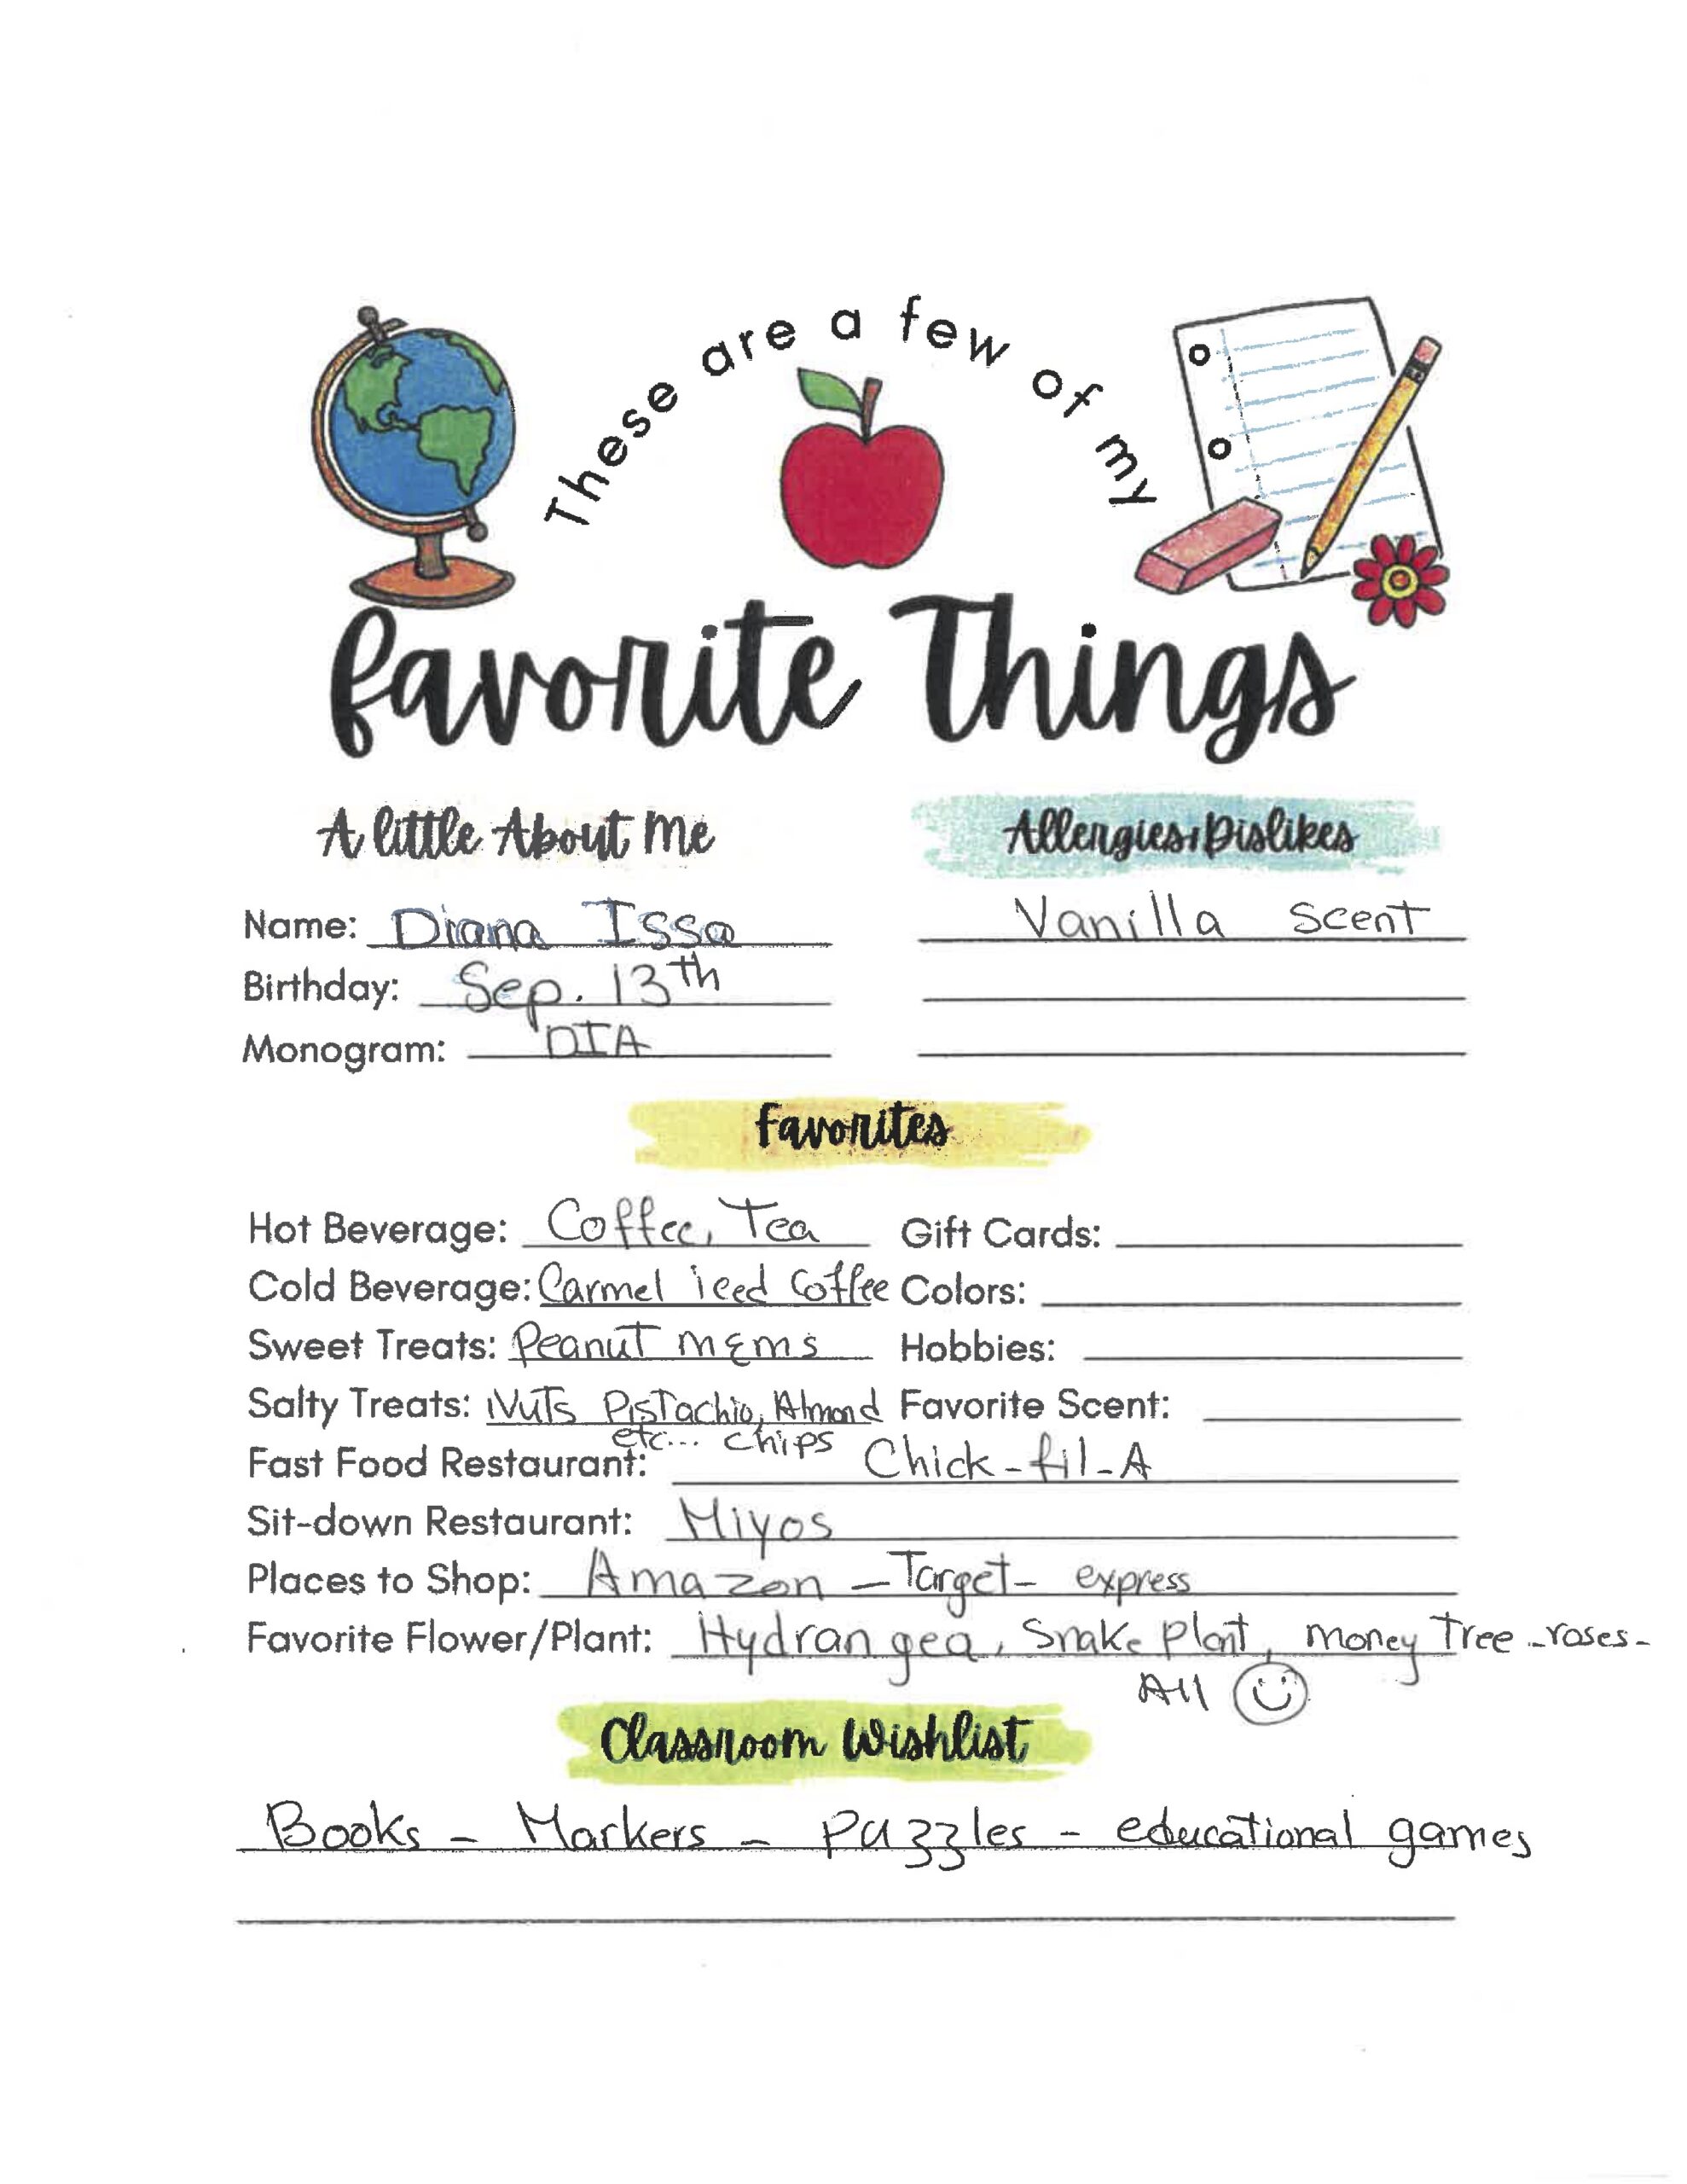 These are a few of my
favorite Things
A little About Me
Allergies/Dislikes
Name: Diana Issa
Vanilla Scent
Birthday: Sep. 13th
Monogram: DIA
Favorites
Hot Beverage: Coffee, Tea Gift Cards:
Cold Beverage: Carmel iced Coffee Colors:
Sweet Treats: Peanut m&ms Hobbies:
Salty Treats: Nuts Pistachio, Almond Favorite Scent:
etc... chips
Fast Food Restaurant: Chick-fil-A
Sit-down Restaurant: Miyos
Places to Shop: Amazon - Target - express
Favorite Flower/Plant: Hydrangea, Snake Plant, money Tree - roses -
All
Classroom Wishlist
Books - Markers - Puzzles - educational games